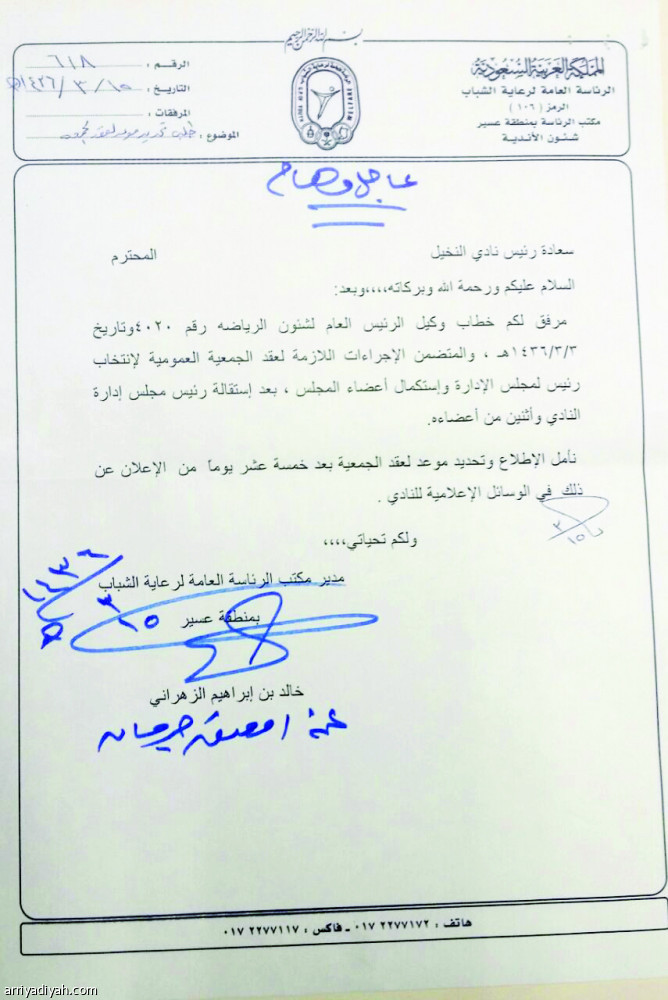 بسم الله الرحمن الرحيم
المملكة العربية السعودية
الرئاسة العامة لرعاية الشباب
الرمز (١٠٦)
مكتب الرئاسة بمنطقة عسير
شئون الأندية
الرقم : ٦١٨
التاريخ : ١٥ / ٣ / ١٤٣٦هـ
المرفقات :
الموضوع : طلب تحديد موعد لعقد
عاجل وهام
سعادة رئيس نادي النخيل المحترم
السلام عليكم ورحمة الله وبركاته،،،،وبعد:
مرفق لكم خطاب وكيل الرئيس العام لشئون الرياضه رقم ٤٠٢٠وتاريخ
١٤٣٦/٣/٣هـ ، والمتضمن الإجراءات اللازمة لعقد الجمعية العمومية لإنتخاب
رئيس لمجلس الإدارة وإستكمال أعضاء المجلس ، بعد إستقالة رئيس مجلس إدارة
النادي وأثنين من أعضاءه.
نأمل الإطلاع وتحديد موعد لعقد الجمعية بعد خمسة عشر يوماً من الإعلان عن
ذلك في الوسائل الإعلامية للنادي .
٣/١٥
ولكم تحياتي،،،،
مدير مكتب الرئاسة العامة لرعاية الشباب
بمنطقة عسير
١٥/٣/١٤٣٦هـ
خالد بن إبراهيم الزهراني
هاتف : ٠١٧ ٢٢٧٧١٧٢ ـ فاكس : ٠١٧ ٢٢٧٧١١٧
arriyadiyah.com